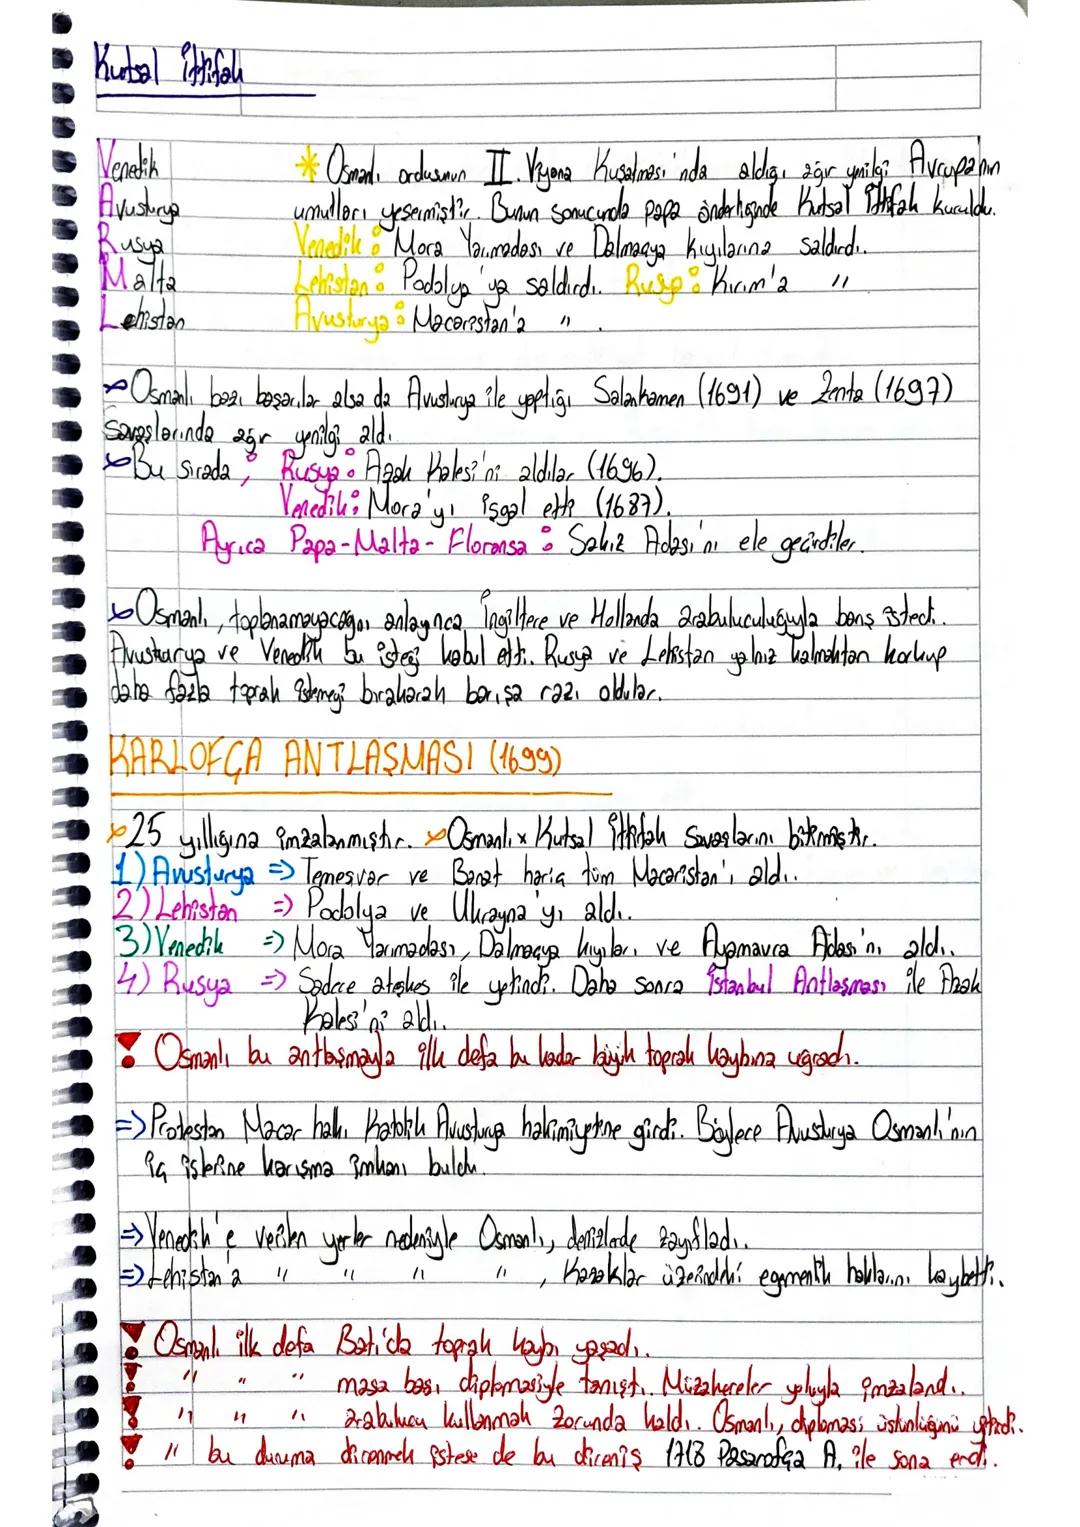 Kutsal İttifak
Venedik
Avusturya
Rusya
Malta
Lehistan
* Osmanlı ordusunun II. Viyana Kuşatması'nda aldığı ağır yenilgi Avrupa'nın
umutları yeşermiştir. Bunun sonucunda papa önderliğinde Kutsal İttifak kuruldu.
Venedik: Mora Yarımadası ve Dalmaçya kıyılarına saldırdı.
Lehistan: Podolya'ya saldırdı. Rusya: Kırım'a "
Avusturya: Macaristan'a " .
Osmanlı bazı başarılar alsa da Avusturya ile yaptığı Salankamen (1691) ve Zenta (1697)
Savaşlarında ağır yenilgi aldı.
Bu sırada; Rusya: Azak Kalesi'ni aldılar (1696).
Venedik: Mora'yı işgal etti (1687).
Ayrıca Papa-Malta-Floransa: Sakız Adası'nı ele geçirdiler.
Osmanlı, toplanamayacağını anlayınca İngiltere ve Hollanda arabuluculuğuyla barış istedi.
Avusturya ve Venedik bu isteği kabul etti. Rusya ve Lehistan yalnız kalmaktan korkup
daha fazla toprak istemeyi bırakarak barışa razı oldular.
KARLOFÇA ANTLAŞMASI (1699)
25 yıllığına imzalanmıştır. Osmanlı x Kutsal İttifak Savaşlarını bitirmiştir.
1) Avusturya => Temeşvar ve Banat hariç tüm Macaristan'ı aldı.
2) Lehistan => Podolya ve Ukrayna'yı aldı.
3) Venedik => Mora Yarımadası, Dalmaçya kıyıları ve Ayamavra Adası'nı aldı.
4) Rusya => Sadece ateşkes ile yetindi. Daha sonra İstanbul Antlaşması ile Azak
Kalesi'ni aldı.
! Osmanlı bu antlaşmayla ilk defa bu kadar büyük toprak kaybına uğradı.
=> Protestan Macar halkı Katolik Avusturya hakimiyetine girdi. Böylece Avusturya Osmanlı'nın
iç işlerine karışma imkanı buldu.
=> Venedik'e verilen yerler nedeniyle Osmanlı, denizlerde zayıfladı.
=> Lehistan'a " " " " , Kazaklar üzerindeki egemenlik haklarını kaybetti.
! Osmanlı ilk defa Batı'da toprak kaybı yaşadı.
! " " " masa başı diplomasiyle tanıştı. Müzakereler yoluyla imzalandı.
! " " " arabulucu kullanmak zorunda kaldı. Osmanlı, diplomasi üstünlüğünü yitirdi.
! " bu duruma direnmek istese de bu direniş 1718 Pasarofça A. ile sona erdi.